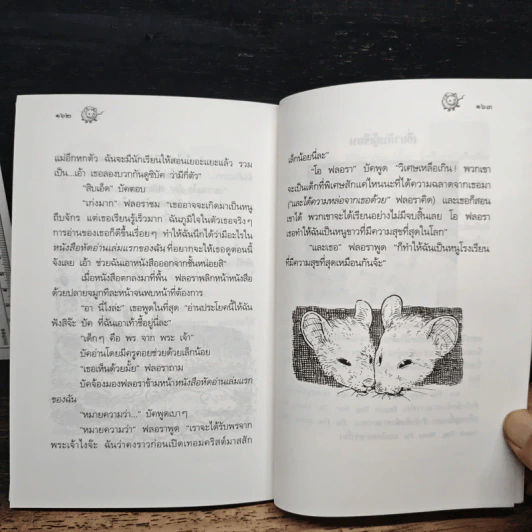 ๑๖๒
แม่อีกหกตัว ฉันจะมีนักเรียนให้สอนเยอะแยะแล้ว รวม
เป็น...เอ้า เธอลองบวกกันดูซิบัค ว่ามีกี่ตัว"
"สิบเอ็ด" บัคตอบ
"เก่งมาก" ฟลอราชม "เธออาจจะเกิดมาเป็นหนู
ถีบจักร แต่เธอเรียนรู้เร็วมาก ฉันภูมิใจในตัวเธอจริงๆ
การอ่านของเธอก็ดีขึ้นเรื่อยๆ ทำให้ฉันนึกได้ว่ามีอะไรใน
หนังสือหัดอ่านเล่มแรกของฉันที่อยากจะให้เธอดูตอนนี้
จังเลย เอ้า ช่วยฉันเอาหนังสือออกจากชั้นหน่อยสิ"
เมื่อหนังสือตกลงมาที่พื้น ฟลอราพลิกหน้าหนังสือ
ด้วยปลายจมูกทีละหน้าจนพบหน้าที่ต้องการ
"อา นี่ไงล่ะ" เธอพูดในที่สุด "อ่านประโยคนี้ให้ฉัน
ฟังสิจ๊ะ บัค ที่ฉันเอาเท้าชี้อยู่นี่ละ"
"เด็กๆ คือ พร จาก พระ เจ้า"
บัคอ่านโดยมีครูคอยช่วยด้วยเล็กน้อย
"เธอเห็นด้วยมั้ย" ฟลอราถาม
บัคจ้องมองฟลอราข้ามหน้าหนังสือหัดอ่านเล่มแรก
ของฉัน
"หมายความว่า..." บัคพูดเบาๆ
"หมายความว่า" ฟลอราพูด "เราจะได้รับพรจาก
พระเจ้าไงจ๊ะ ฉันว่าคงราวก่อนเปิดเทอมคริสต์มาสสัก
๑๖๓
เล็กน้อยนี่ละ"
"โอ ฟลอรา" บัคพูด "วิเศษเหลือเกิน! พวกเขา
จะเป็นเด็กที่พิเศษสักแค่ไหนนะที่ได้ความฉลาดจากเธอมา
(และได้ความหล่อจากเธอด้วย ฟลอราคิด) และเธอก็สอน
เขาได้ พวกเขาจะได้เรียนอย่างไม่มีจบสิ้นเลย โอ ฟลอรา
เธอทำให้ฉันเป็นหนูขาวที่มีความสุขที่สุดในโลก"
"และเธอ" ฟลอราพูด "ก็ทำให้ฉันเป็นหนูโรงเรียน
ที่มีความสุขที่สุดเหมือนกันจ้ะ"